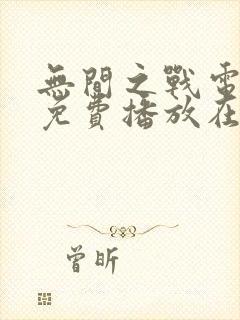 無間之戰電
免費播放在
曾昕